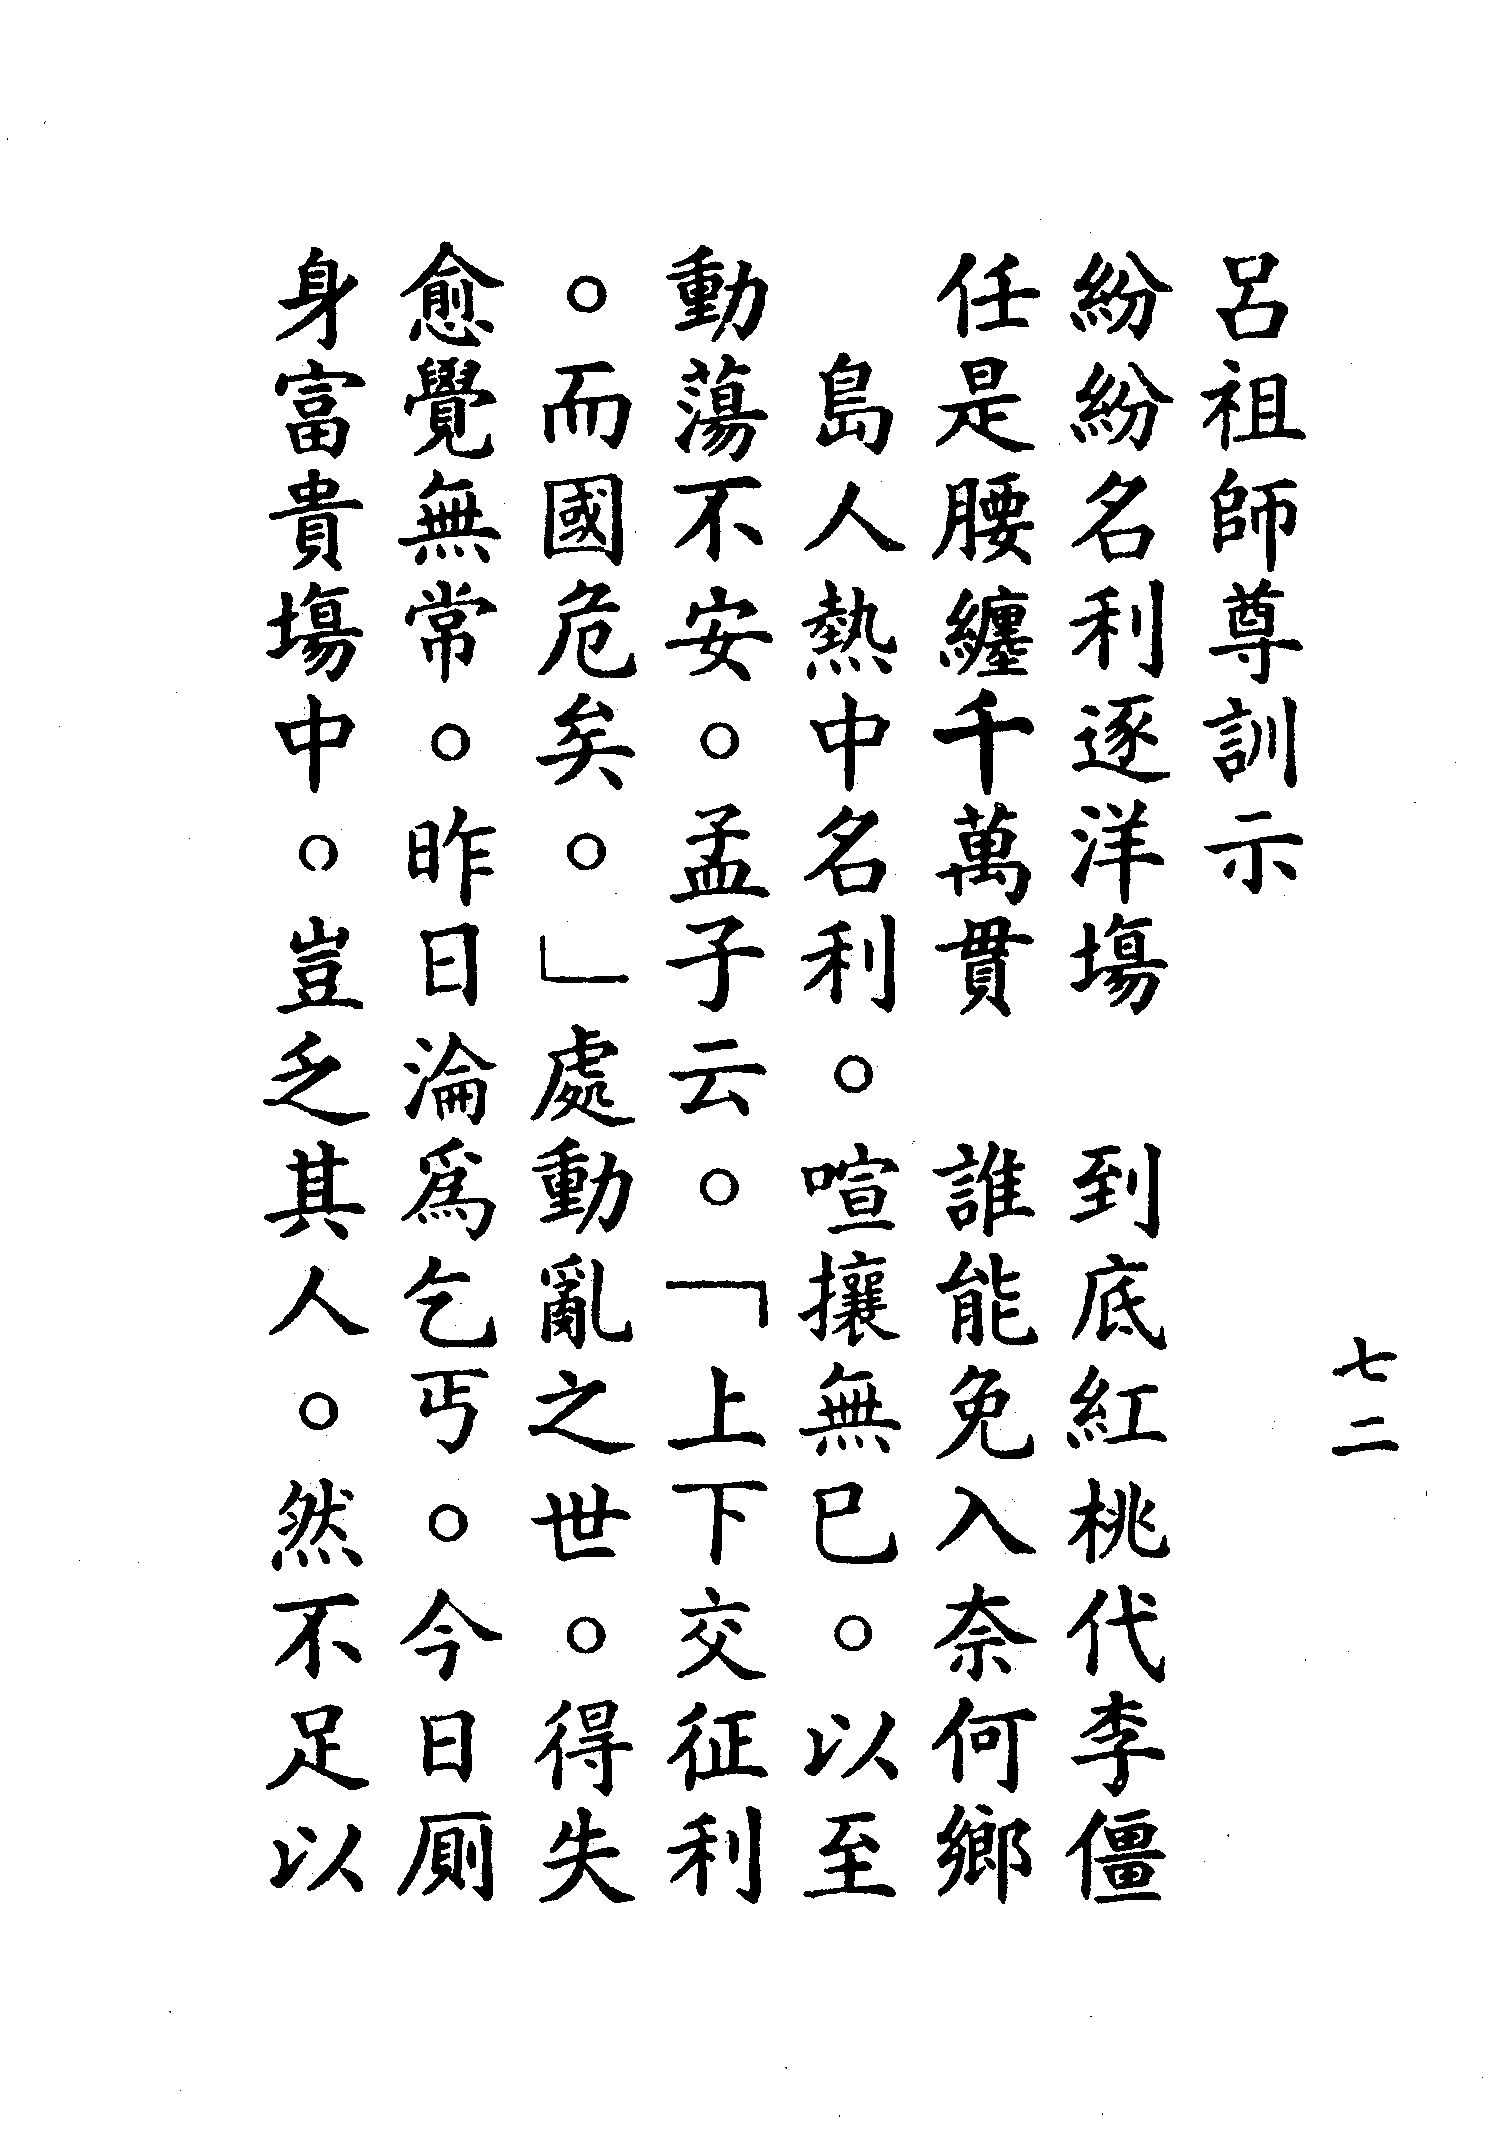 七二
呂祖師尊訓示
紛紛名利逐洋場　到底紅桃代李僵
任是腰纏千萬貫　誰能免入奈何鄉
島人熱中名利。喧攘無已。以至
動蕩不安。孟子云。「上下交征利
。而國危矣。」處動亂之世。得失
愈覺無常。昨日淪爲乞丐。今日厠
身富貴塲中。豈乏其人。然不足以